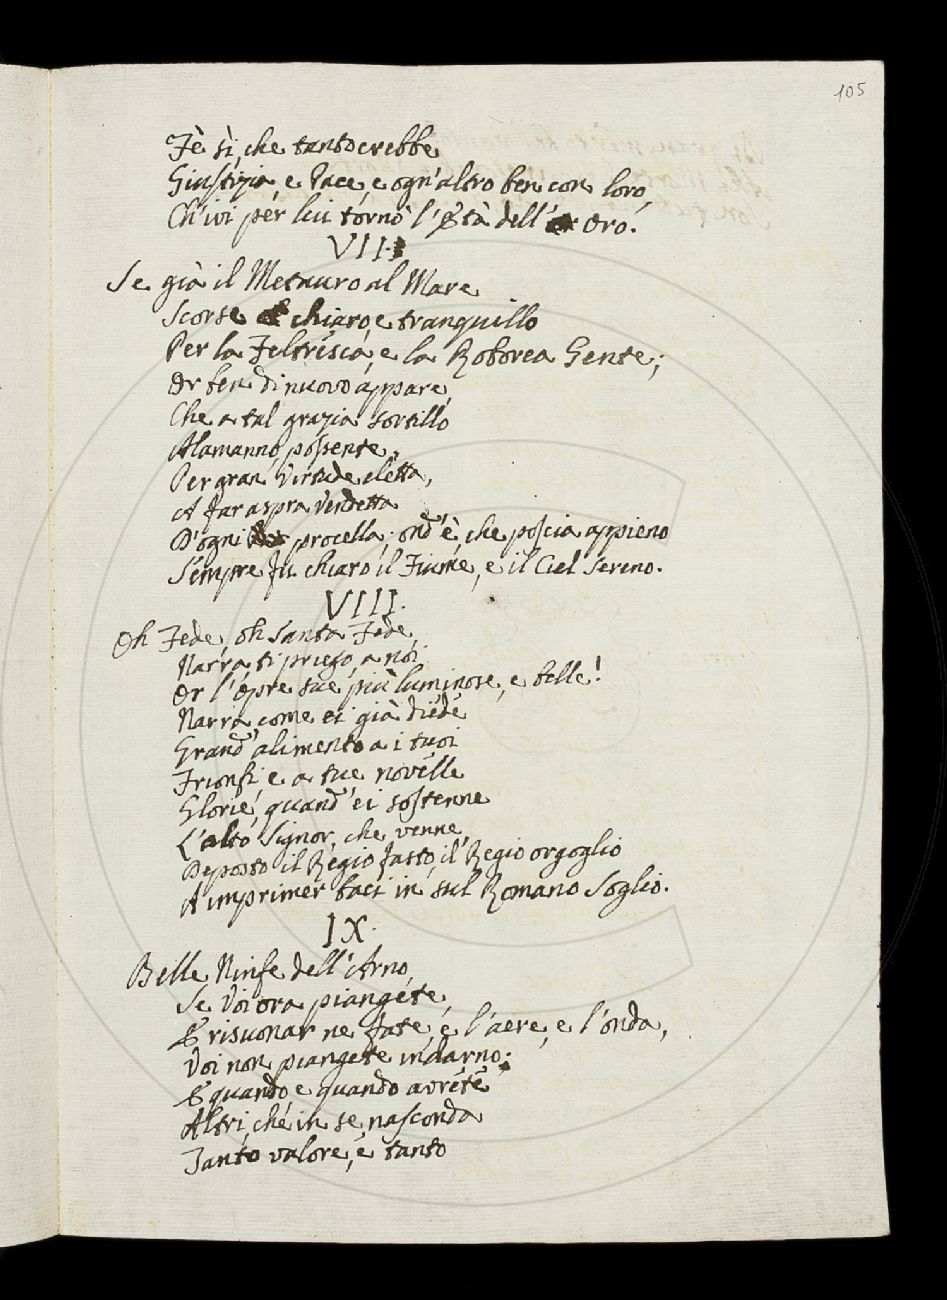 105
Fè sì, che tanto crebbe
Giustizia, e Pace, e ogn'altro ben con loro,
Ch'ivi per lui tornò l'Età dell' Oro.
VII.
Se già il Metauro al Mare
Scorse chiaro, e tranquillo
Per la Feltresca, e la Roborea Gente;
Or ben di nuovo appare,
Che a tal grazia sortillo
Alamanno possente,
Per gran Virtude eletta,
A far aspra Vendetta
D'ogni procella; ond'è, che poscia appieno
Sempre fu chiaro il Fiume, e il Ciel Sereno.
VIII.
Oh Fede, oh Santa Fede,
Narra ti priego, a noi
Or l'opre sue più luminose, e belle!
Narra come ei già diede
Grand'alimento a i tuoi
Trionfi, e a tue novelle
Glorie, quand'ei sostenne
L'alto Signor, che venne,
Deposto il Regio fasto, il Regio orgoglio
A imprimer baci in sul Romano Soglio.
IX.
Belle Ninfe dell'Arno,
Se Voi ora piangete,
E risuonar ne fate, e l'aere, e l'onda,
Voi non piangete indarno;
E quando, e quando avrete
Altri, che in se nasconda
Tanto valore, e tanto